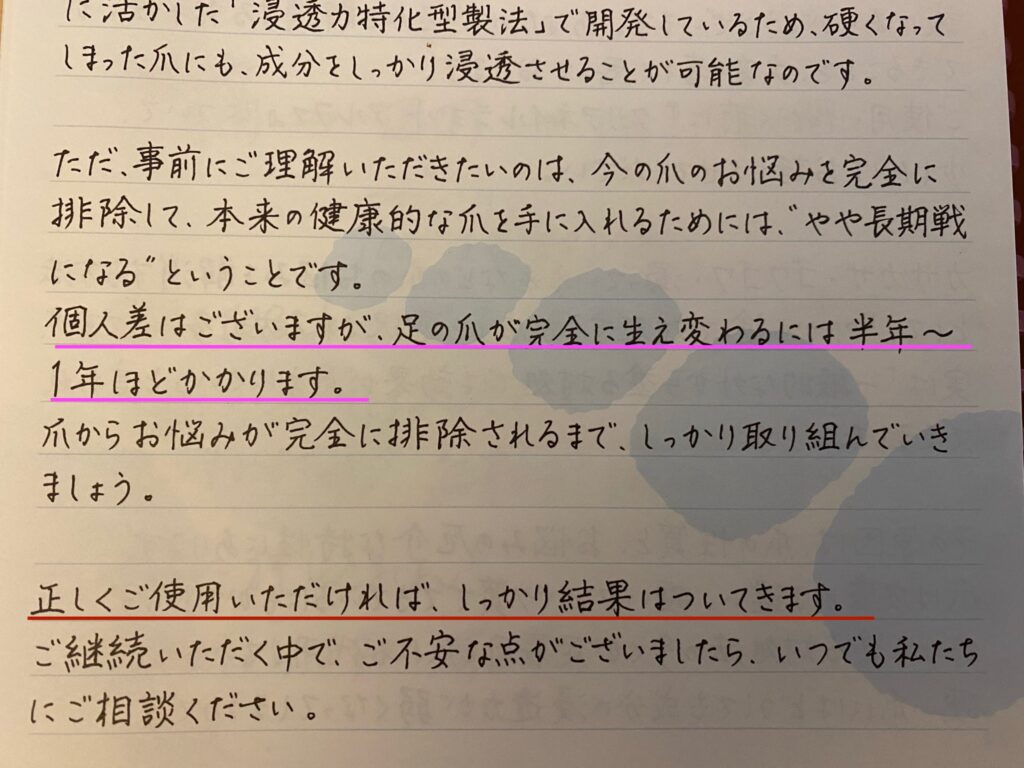 に活かした「浸透力特化型製法」で開発しているため、硬くなって
しまった爪にも、成分をしっかり浸透させることが可能なのです。
ただ、事前にご理解いただきたいのは、今の爪のお悩みを完全に
排除して、本来の健康的な爪を手に入れるためには、“やや長期戦
になる”ということです。
個人差はございますが、足の爪が完全に生え変わるには半年〜
1年ほどかかります。
爪からお悩みが完全に排除されるまで、しっかり取り組んでいき
ましょう。
正しくご使用いただければ、しっかり結果はついてきます。
ご継続いただく中で、ご不安な点がございましたら、いつでも私たち
にご相談ください。